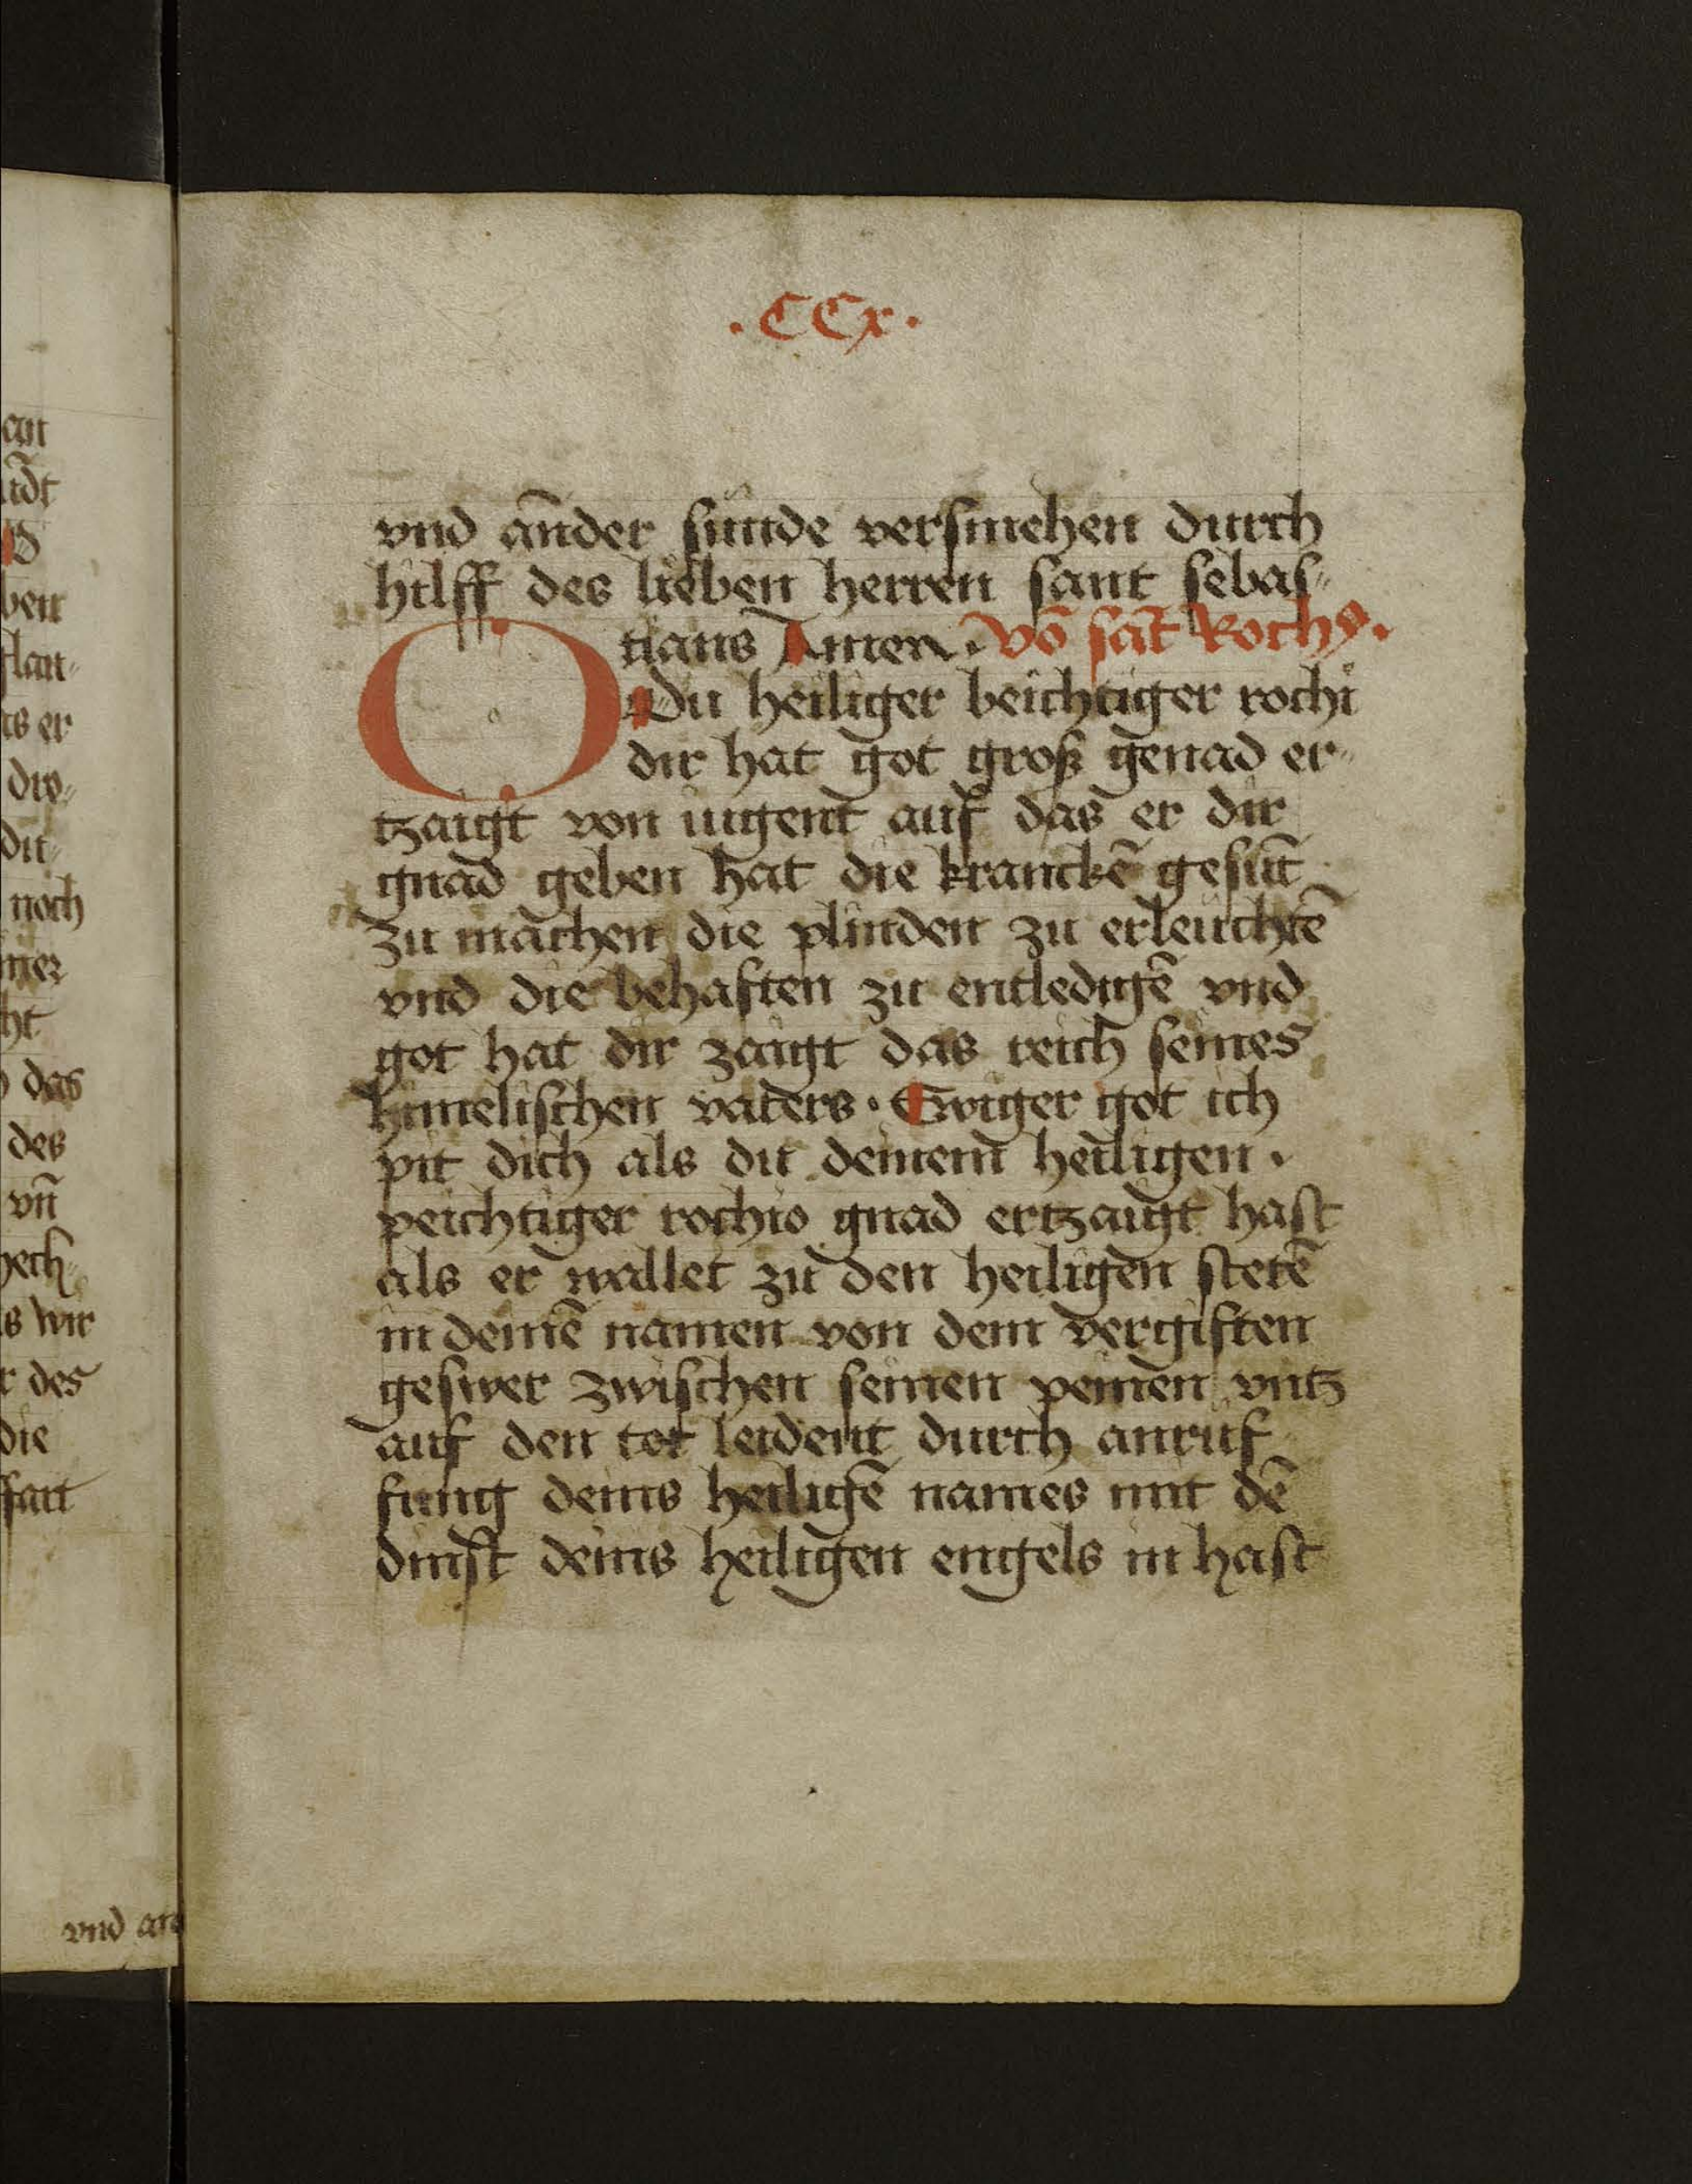 an
ndt
ben
flan⸗
as er
dro⸗
du⸗
noch
mer
ht
das
des
vn̄
hech⸗
s wir
r des
die
ſant
vnd an
.CCx.
vnd ander ſunde verſmehen durch
hilff des lieben herren ſant ſebas⸗
tians Amen. Vō ſāt Rochꝰ.
O Du heiliger beichtiger rochi
dir hat got groß genad er⸗
tzaigt von iugent auf das er dir
gnad geben hat die kranckē geſūt
zu machen die plinden zu erleuchtē
vnd die behaften zu entledigē vnd
got hat dir zaigt das reich ſeines
himeliſchen vaters. Ewiger got ich
pit dich als du deinem heiligen.
peichtiger rochio gnad ertzaigt haſt
als er wallet zu den heiligen ſtetē
in deinē namen von dem vergiften
geſwer zwiſchen ſeinen peinen vntz
auf den tot leident durch anruf
fung deins heiligē names mit dē
dinſt deins heiligen engels in haſt